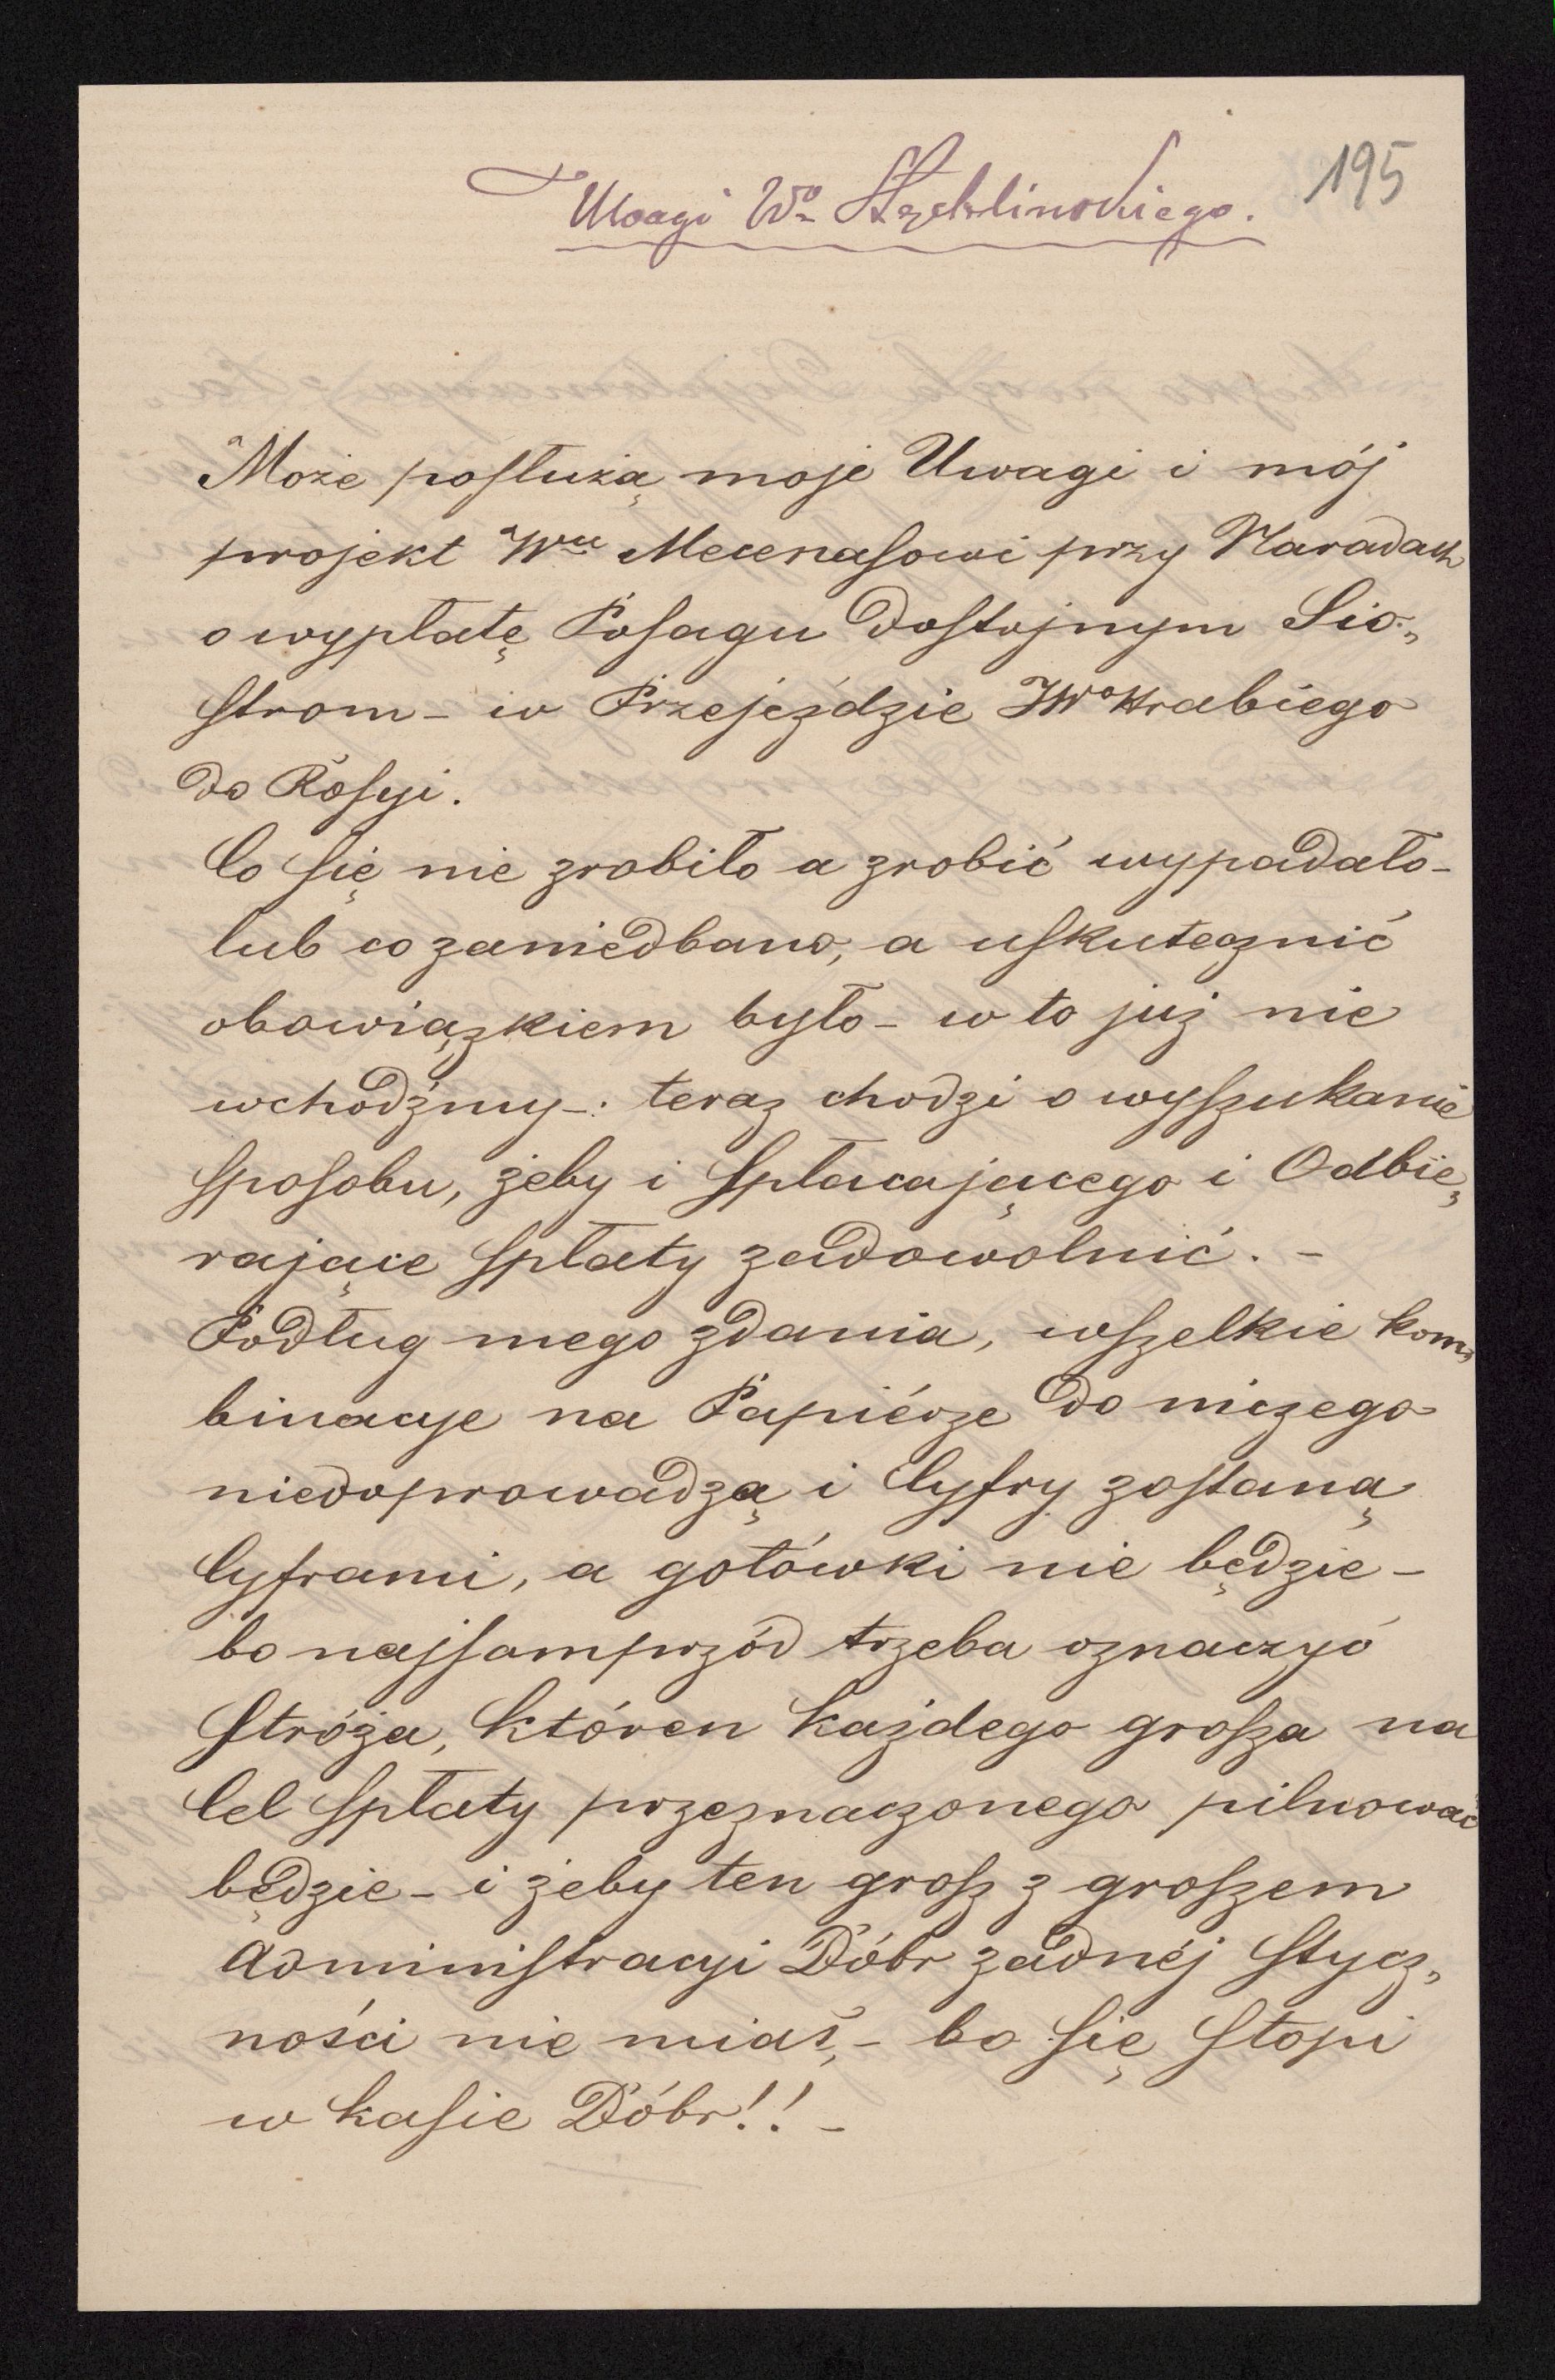 195
Uwagi Wo
Może posłużą moje Uwagi i mój
projekt Wmu Mecenasowi przy Naradach
o wypłatę Posagu Dostojnym Sio„
strom – w Przejeździe JWo Hrabiego
do Rosyi.
Co się nie zrobiło a zrobić wypadało –
lub co zaniedbano, a uskutecznić
obowiązkiem było – w to już nie
wchodźmy –: teraz chodzi o wyszukanie
sposobu, żeby i Spłacającego i Odbie„
rające spłaty zadowolnić. –
Podług mego zdania, wszelkie kom„
binacye na Papiérze do niczego
niedoprowadzą i Cyfry zostaną
Cyframi, a gotówki nie będzie –
bo najsamprzód trzeba oznaczyć
Stróża, któren każdego grosza na
Cel spłaty przeznaczonego pilnować
będzie – i żeby ten grosz z groszem
Administracyi Dóbr żadnéj stycz„
ności nie miał, – bo się stopi
w kasie Dóbr!! –